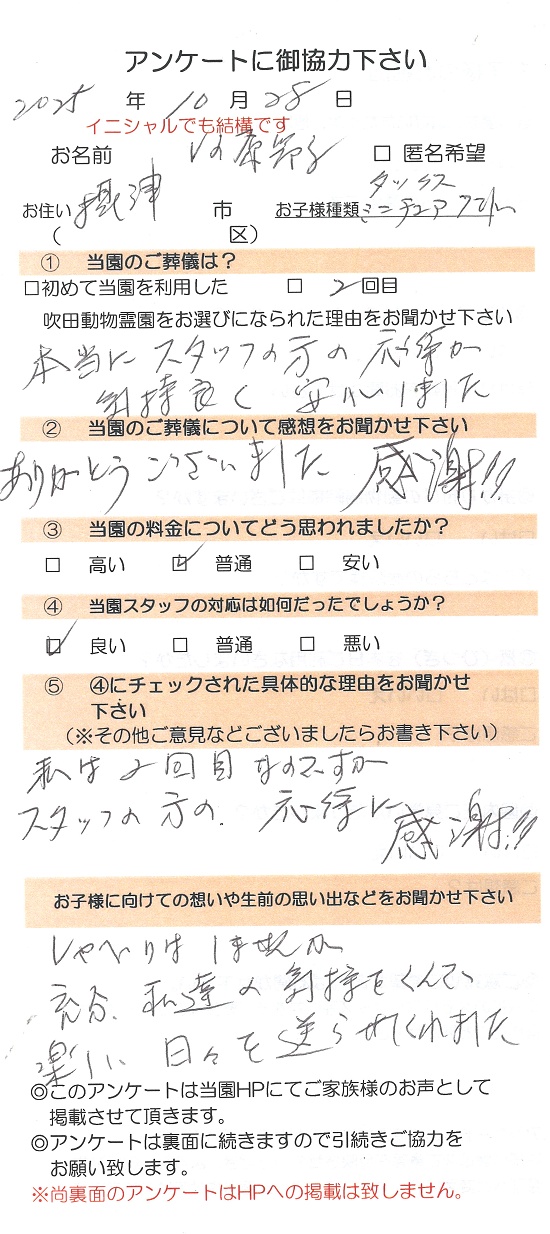 アンケートに御協力下さい
2025 年 10 月 28 日
イニシャルでも結構です
お名前 原 子 □ 匿名希望
タックス
お住い 摂津 市 お子様種類 ミニチュア
( 区)
① 当園のご葬儀は？
□初めて当園を利用した □ 2回目
吹田動物霊園をお選びになられた理由をお聞かせ下さい
本当にスタッフの方の応待が
気持良く 安心しました
② 当園のご葬儀について感想をお聞かせ下さい
ありがとうございました 感謝!!
③ 当園の料金についてどう思われましたか？
□ 高い ☑ 普通 □ 安い
④ 当園スタッフの対応は如何だったでしょうか？
☑ 良い □ 普通 □ 悪い
⑤ ④にチェックされた具体的な理由をお聞かせ
下さい
（※その他ご意見などございましたらお書き下さい）
私は2回目なのですが
スタッフの方の、応待に
感謝!!
お子様に向けての想いや生前の思い出などをお聞かせ下さい
しゃべりはしませんが
充分、私達の気持をくんで、
楽しい日々を送らせてくれました
◎このアンケートは当園HPにてご家族様のお声として
掲載させて頂きます。
◎アンケートは裏面に続きますので引続きご協力を
お願い致します。
※尚裏面のアンケートはHPへの掲載は致しません。